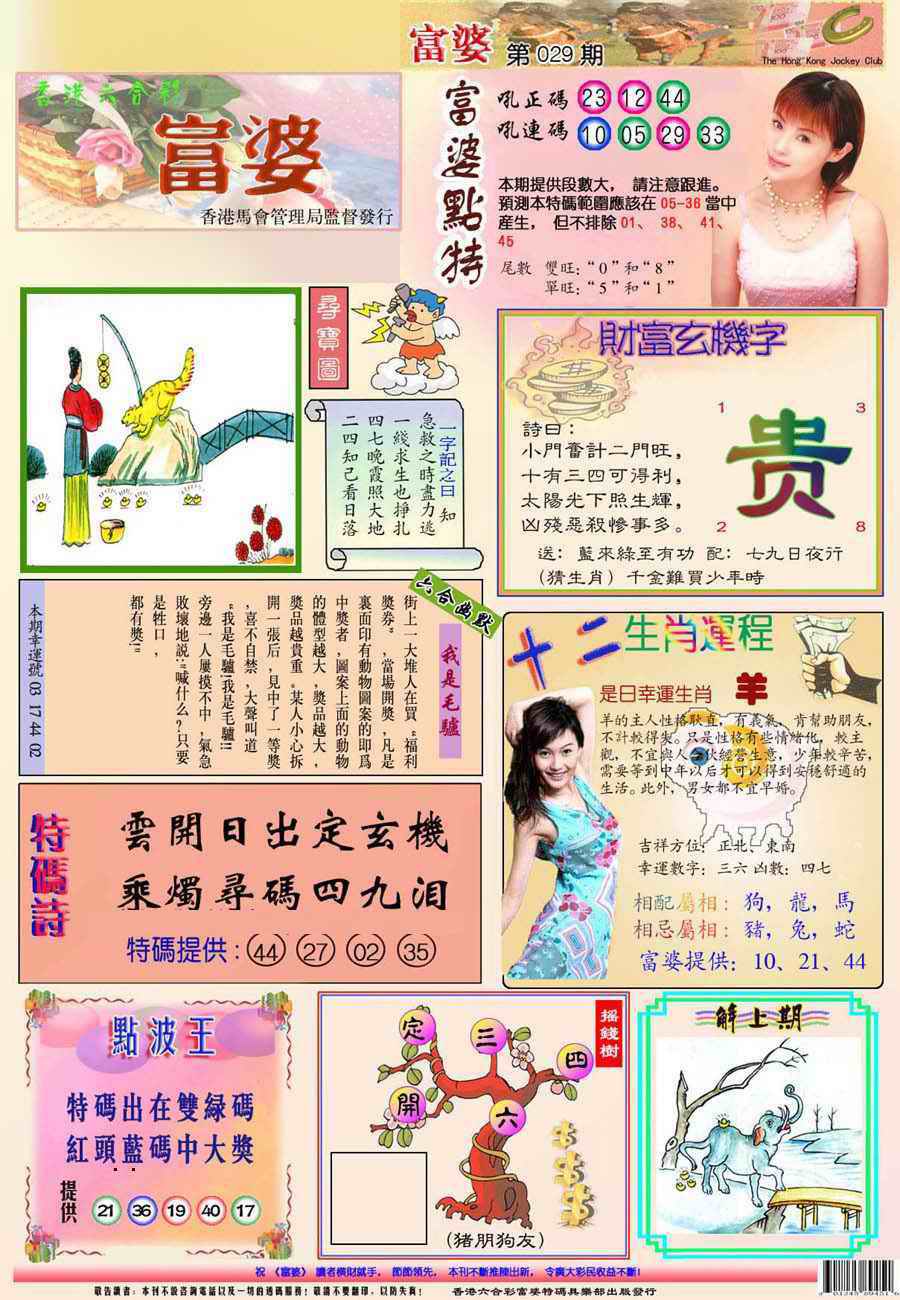 富婆 第 029 期
The Hong Kong Jockey Club
香港六合彩
富婆
香港馬會管理局監督發行
富婆點特
吼正碼 23 12 44
吼連碼 10 05 29 33
本期提供段數大， 請注意跟進。
預測本特碼範圍應該在 05-36 當中
産生， 但不排除 01、 38、 41、
45
尾數 雙旺：“0”和“8”
單旺：“5”和“1”
尋寶圖
一字記之曰 知
急救之時盡力逃
一綫求生也掙扎
四七晚霞照大地
二四知己看日落
財富玄機字
詩曰：
小門奮計二門旺，
十有三四可得利，
太陽光下照生輝，
凶殘惡殺慘事多。
1 3
贵
2 8
送： 藍來綠至有功 配： 七九日夜行
（猜生肖） 千金難買少年時
六合幽默
我是毛驢
街上一大堆人在買“福利
獎券”，當場開獎，凡是
裏面印有動物圖案的即爲
中獎者，圖案上面的動物
的體型越大，獎品越大，
獎品越貴重。某人小心拆
開一張后，見中了一等獎
，喜不自禁，大聲叫道
“我是毛驢!我是毛驢!!!
旁邊一人屢摸不中，氣急
敗壞地説:“喊什么？只要
是牲口，
都有獎!”
本期幸運號 03 17 44 02
十二生肖運程
是日幸運生肖 羊
羊的主人性格耿直，有義氣、肯幫助朋友，
不計較得失。只是性格有些情緒化，較主
觀，不宜與人合伙經營生意，少年較辛苦，
需要等到中年以后才可以得到安穩舒適的
生活。此外，男女都不宜早婚。
吉祥方位：正北、東南
幸運數字：三六 凶數：四七
相配屬相：狗，龍，馬
相忌屬相：豬，兔，蛇
富婆提供：10、21、44
特碼詩
雲開日出定玄機
乘燭尋碼四九泪
特碼提供：44 27 02 35
點波王
特碼出在雙緑碼
紅頭藍碼中大獎
提供 21 36 19 40 17
摇錢樹
定 三 四
開 六
（猪朋狗友）
解上期
祝 《富婆》 讀者橫財就手， 節節領先， 本刊不斷推陳出新， 令廣大彩民收益不斷！
敬告讀者：本刊不設咨詢電話以及一切的透碼服務！敬請不要翻印，以防失真！
香港六合彩富婆特碼具樂部出版發行